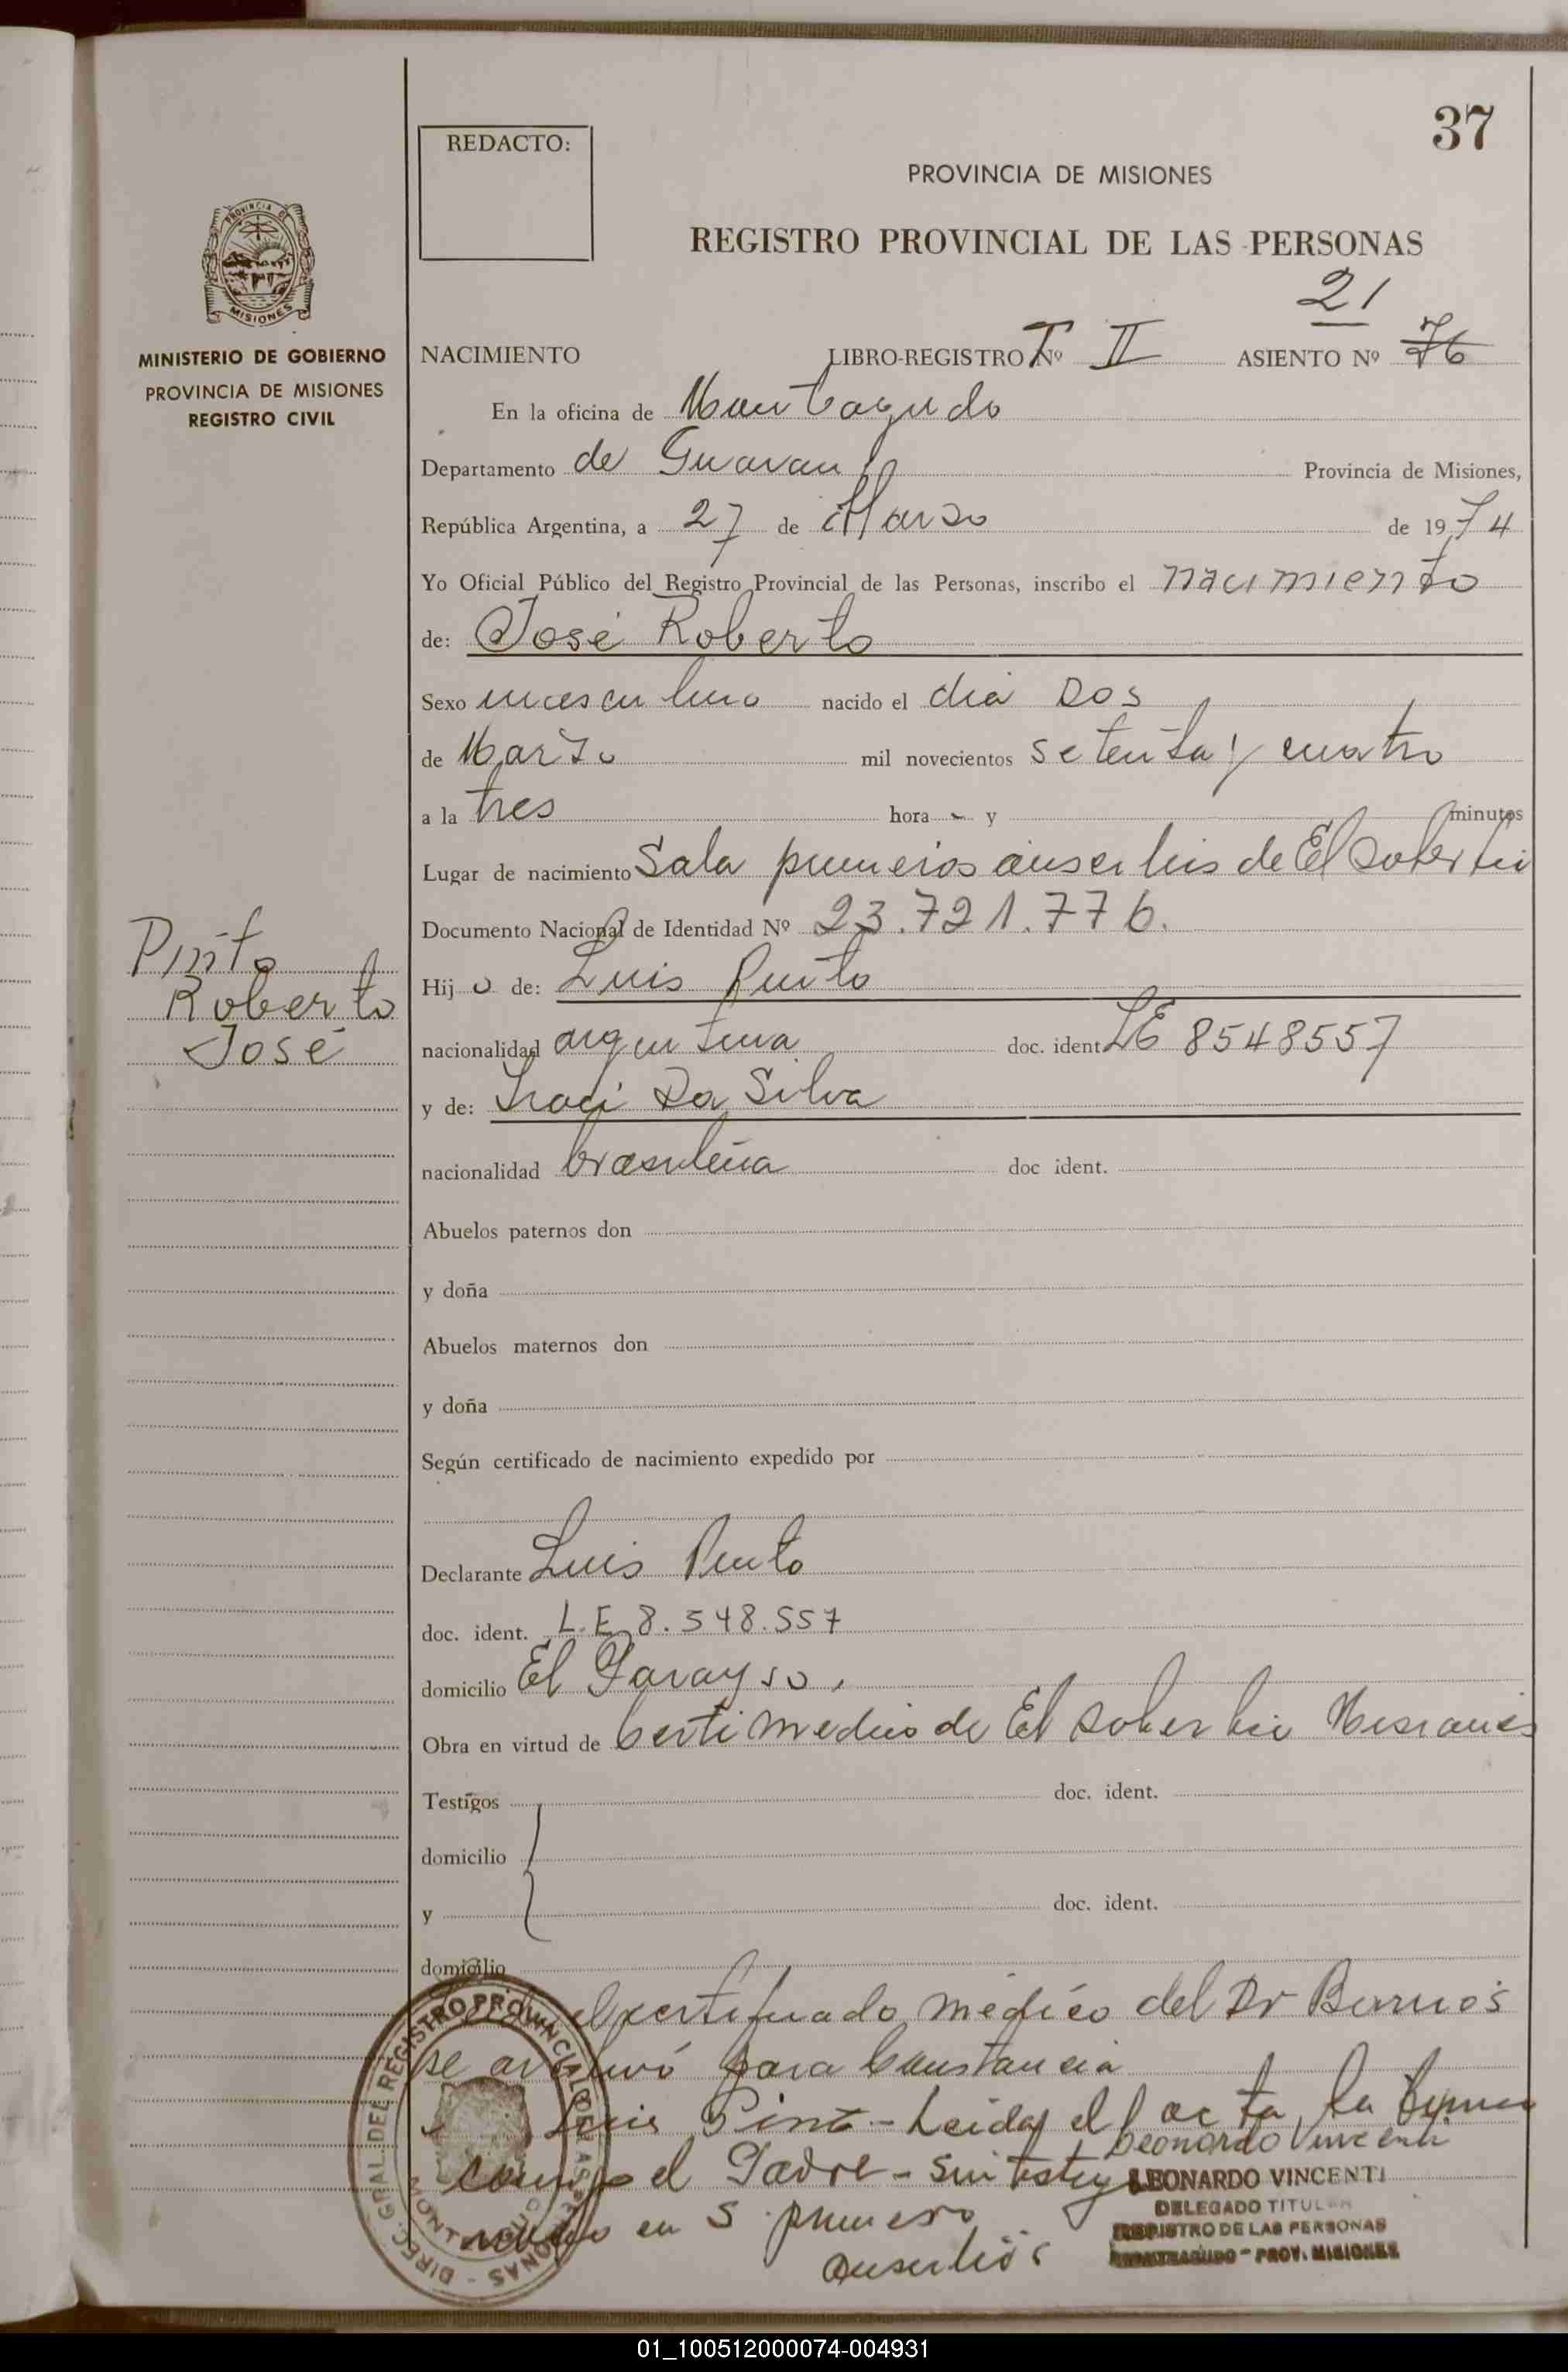 37
REDACTO:
PROVINCIA DE MISIONES
REGISTRO PROVINCIAL DE LAS PERSONAS
PROVINCIA DE
MISIONES
MINISTERIO DE GOBIERNO
PROVINCIA DE MISIONES
REGISTRO CIVIL
21
NACIMIENTO LIBRO-REGISTRO Nº T II ASIENTO Nº 76
En la oficina de Monteagudo
Departamento de Guarani Provincia de Misiones,
República Argentina, a 27 de Marzo de 1974
Yo Oficial Público del Registro Provincial de las Personas, inscribo el nacimiento
de: José Roberto
Sexo masculino nacido el dia Dos
de Marzo mil novecientos setenta y cuatro
a la tres hora - y minutos
Lugar de nacimiento Sala primeros auserlios de El Soberbio
Documento Nacional de Identidad Nº 23.721.776.
Pinto
Roberto
José
Hijo de: Luis Pinto
nacionalidad argentina doc. ident. LE 8548557
y de: Iraci Da Silva
nacionalidad brasileña doc ident.
Abuelos paternos don
y doña
Abuelos maternos don
y doña
Según certificado de nacimiento expedido por
Declarante Luis Pinto
doc. ident. L.E 8.548.557
domicilio El Parayso,
Obra en virtud de Certi Medico de El Soberbio Misiones
Testigos doc. ident.
domicilio
y doc. ident.
domicilio
el certificado médico del Dr Barrios
se archivó para Constancia
Luis Pinto - Leida el acta, la firma
Leonardo Vincenti
el Padre - sin testigo
LEONARDO VINCENTI
DELEGADO TITULAR
REGISTRO DE LAS PERSONAS
MONTEAGUDO - PROV. MISIONES
en S. primeros
auserlios
DIREC. GRAL. DEL REGISTRO PROVINCIAL DE LAS PERSONAS
MONTEAGUDO
01_100512000074-004931